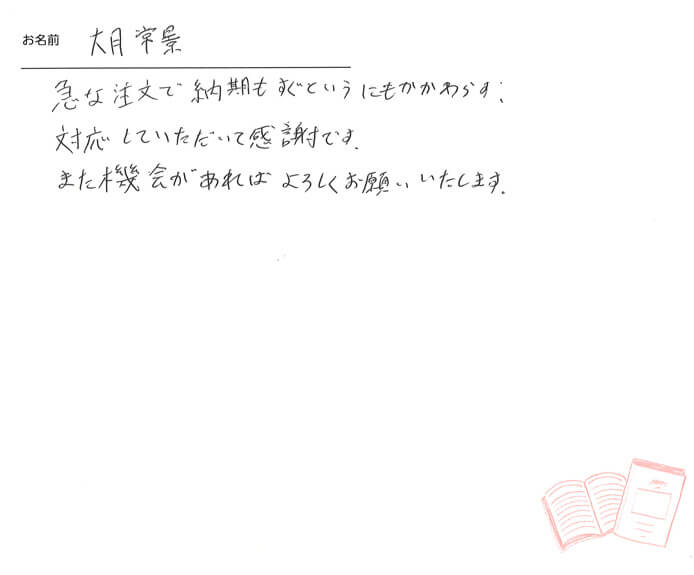 お名前 大月 常景
急な注文で納期もすぐというにもかかわらず、
対応していただいて感謝です.
また機会があれば よろしくお願いいたします.